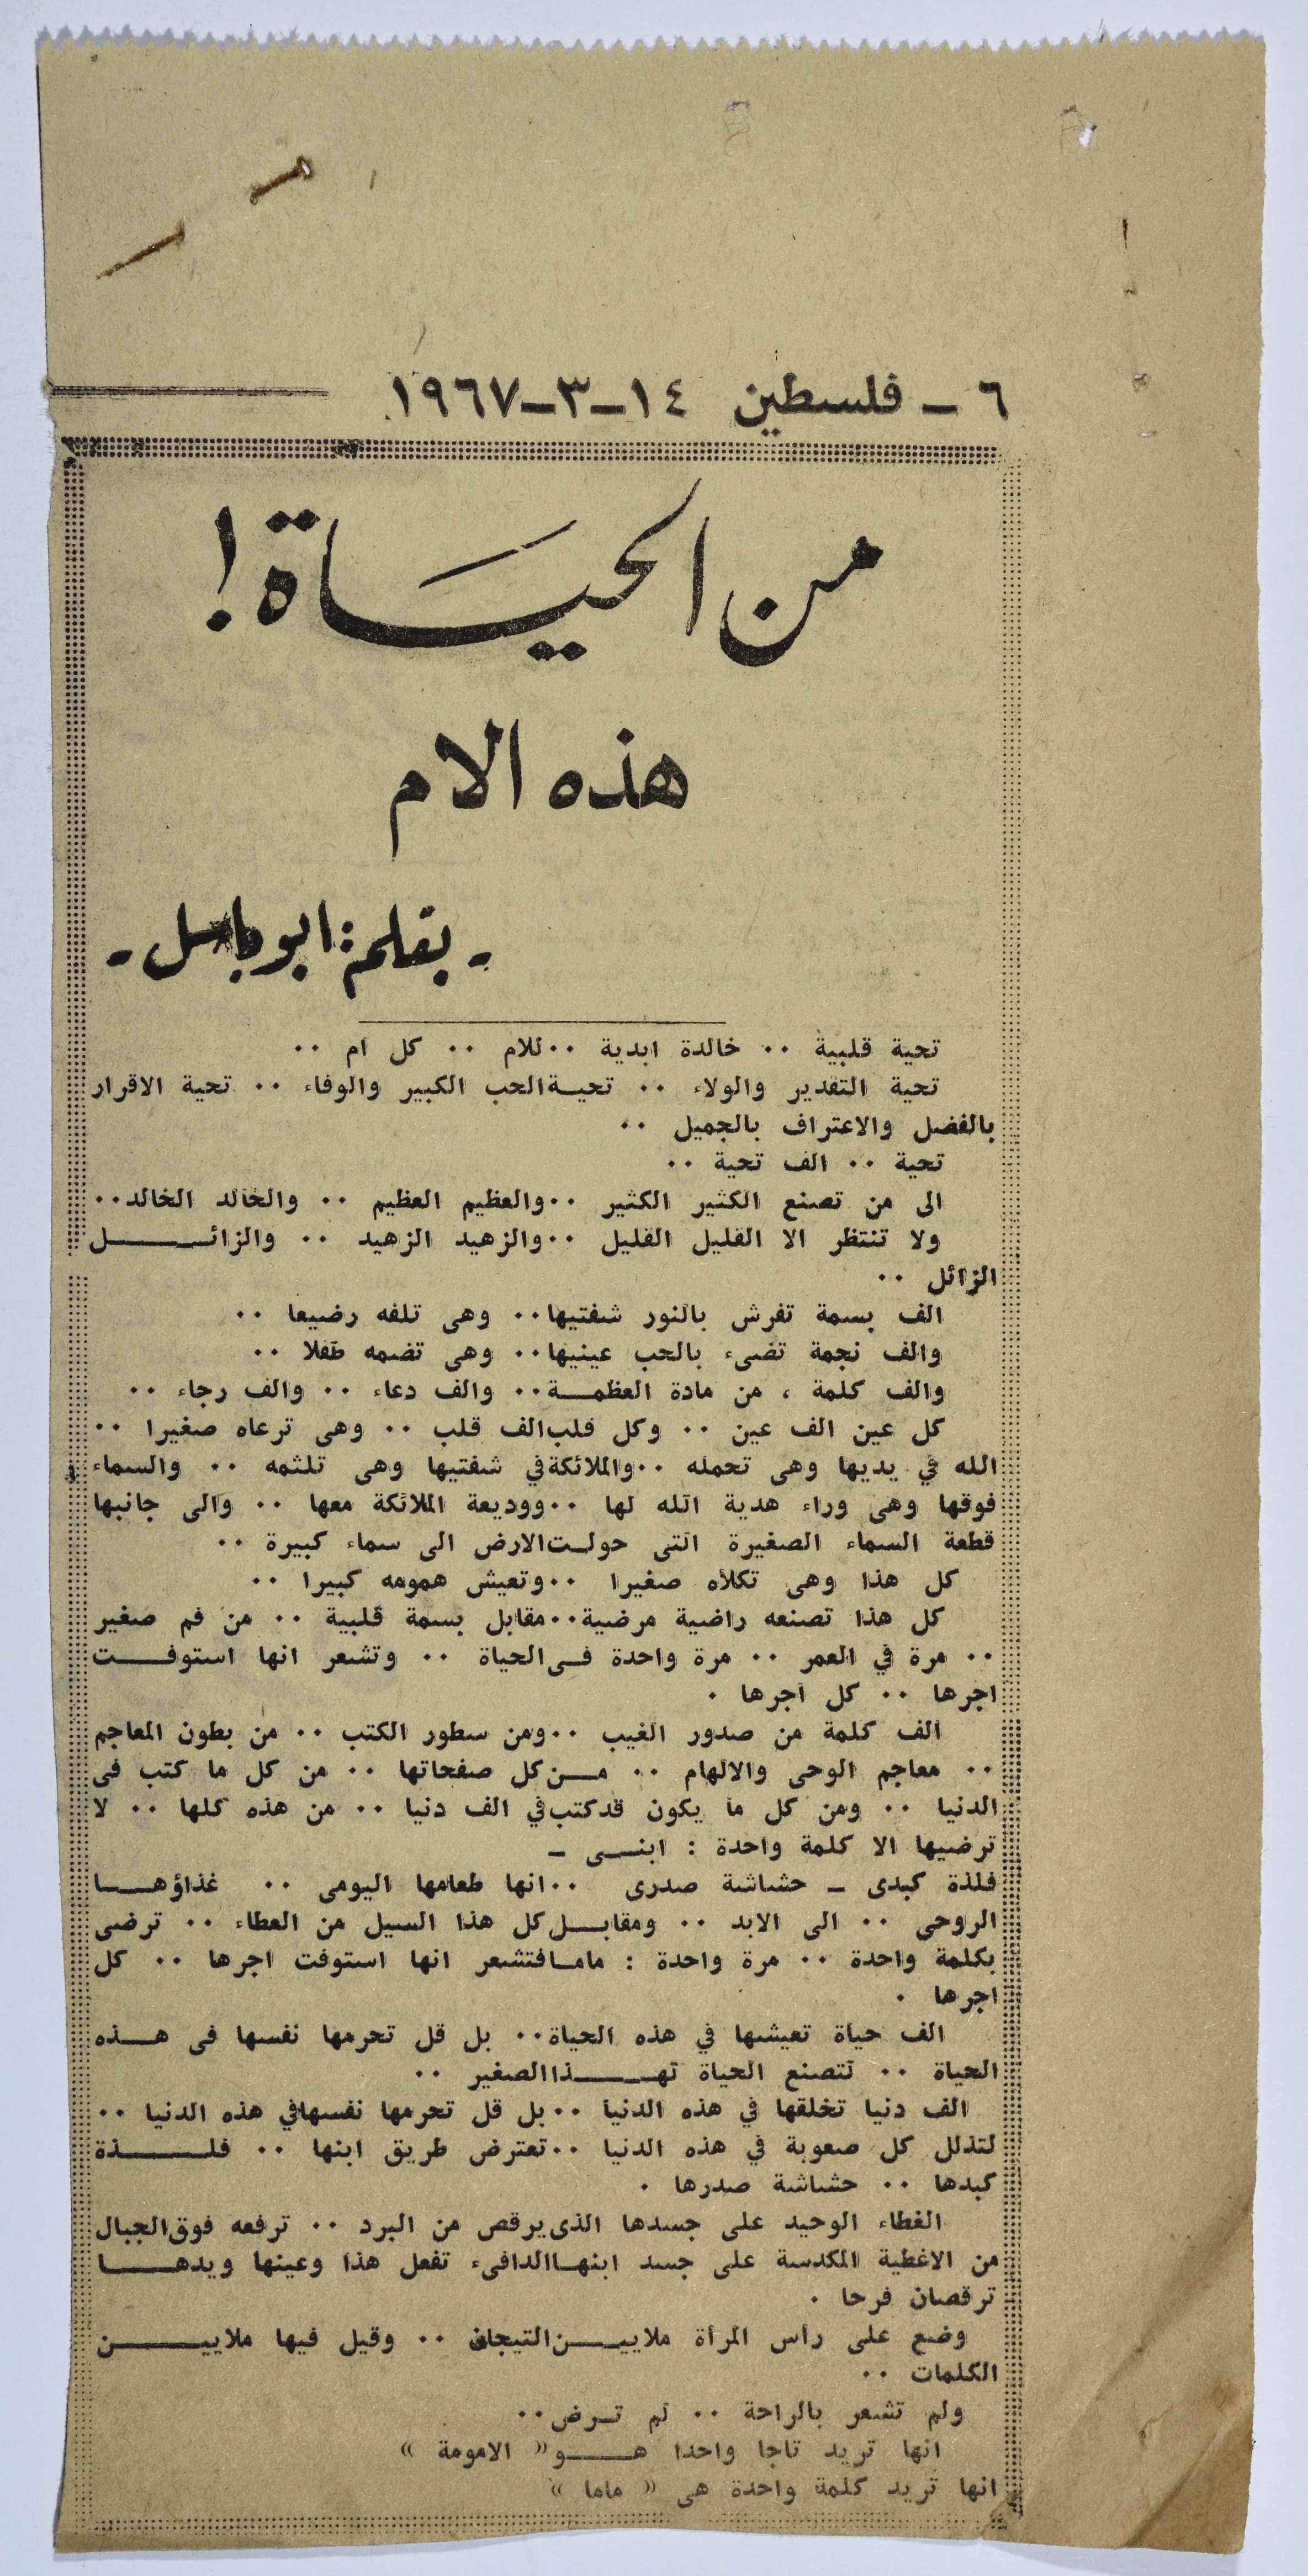 ٦ - فلسطين ١٤-٣-١٩٦٧
من الحياة !
هذه الام
- بقلم : ابو باسل -
تحية قلبية ٠٠ خالدة ابدية ٠٠ للام ٠٠ كل ام ٠٠
تحية التقدير والولاء ٠٠ تحية الحب الكبير والوفاء ٠٠ تحية الاقرار
بالفضل والاعتراف بالجميل ٠٠
تحية ٠٠ الف تحية ٠٠
الى من تصنع الكثير الكثير ٠٠ والعظيم العظيم ٠٠ والخالد الخالد ٠٠
ولا تنتظر الا القليل القليل ٠٠ والزهيد الزهيد ٠٠ والزائل
الزائل ٠٠
الف بسمة تفرش بالنور شفتيها ٠٠ وهى تلفه رضيعا ٠٠
والف نجمة تضىء بالحب عينيها ٠٠ وهى تضمه طفلا ٠٠
والف كلمة ، من مادة العظمة ٠٠ والف دعاء ٠٠ والف رجاء ٠٠
كل عين الف عين ٠٠ وكل قلب الف قلب ٠٠ وهى ترعاه صغيرا ٠٠
الله في يديها وهى تحمله ٠٠ والملائكة في شفتيها وهى تلثمه ٠٠ والسماء
فوقها وهى وراء هدية الله لها ٠٠ ووديعة الملائكة معها ٠٠ والى جانبها
قطعة السماء الصغيرة التى حولت الارض الى سماء كبيرة ٠٠
كل هذا وهى تكلاه صغيرا ٠٠ وتعيش همومه كبيرا ٠٠
كل هذا تصنعه راضية مرضية ٠٠ مقابل بسمة قلبية ٠٠ من فم صغير
٠٠ مرة في العمر ٠٠ مرة واحدة فى الحياة ٠٠ وتشعر انها استوفت
اجرها ٠٠ كل اجرها ٠
الف كلمة من صدور الغيب ٠٠ ومن سطور الكتب ٠٠ من بطون المعاجم
٠٠ معاجم الوحى والالهام ٠٠ من كل صفحاتها ٠٠ من كل ما كتب فى
الدنيا ٠٠ ومن كل ما يكون قد كتب في الف دنيا ٠٠ من هذه كلها ٠٠ لا
ترضيها الا كلمة واحدة : ابنى -
فلذة كبدى - حشاشة صدرى ٠٠ انها طعامها اليومى ٠٠ غذاؤها
الروحى ٠٠ الى الابد ٠٠ ومقابل كل هذا السيل من العطاء ٠٠ ترضى
بكلمة واحدة ٠٠ مرة واحدة : ماما فتشعر انها استوفت اجرها ٠٠ كل
اجرها ٠
الف حياة تعيشها في هذه الحياة ٠٠ بل قل تحرمها نفسها فى هذه
الحياة ٠٠ لتصنع الحياة لهذا الصغير ٠٠
الف دنيا تخلقها في هذه الدنيا ٠٠ بل قل تحرمها نفسها في هذه الدنيا ٠٠
لتذلل كل صعوبة في هذه الدنيا ٠٠ تعترض طريق ابنها ٠٠ فلذة
كبدها ٠٠ حشاشة صدرها ٠
الغطاء الوحيد على جسدها الذى يرقص من البرد ٠٠ ترفعه فوق الجبال
من الاغطية المكدسة على جسد ابنها الدافىء تفعل هذا وعينها ويدها
ترقصان فرحا ٠
وضع على رأس المرأة ملايين التيجان ٠٠ وقيل فيها ملايين
الكلمات ٠٠
ولم تشعر بالراحة ٠٠ لم ترض ٠٠
انها تريد تاجا واحدا هو « الامومة »
انها تريد كلمة واحدة هى « ماما »